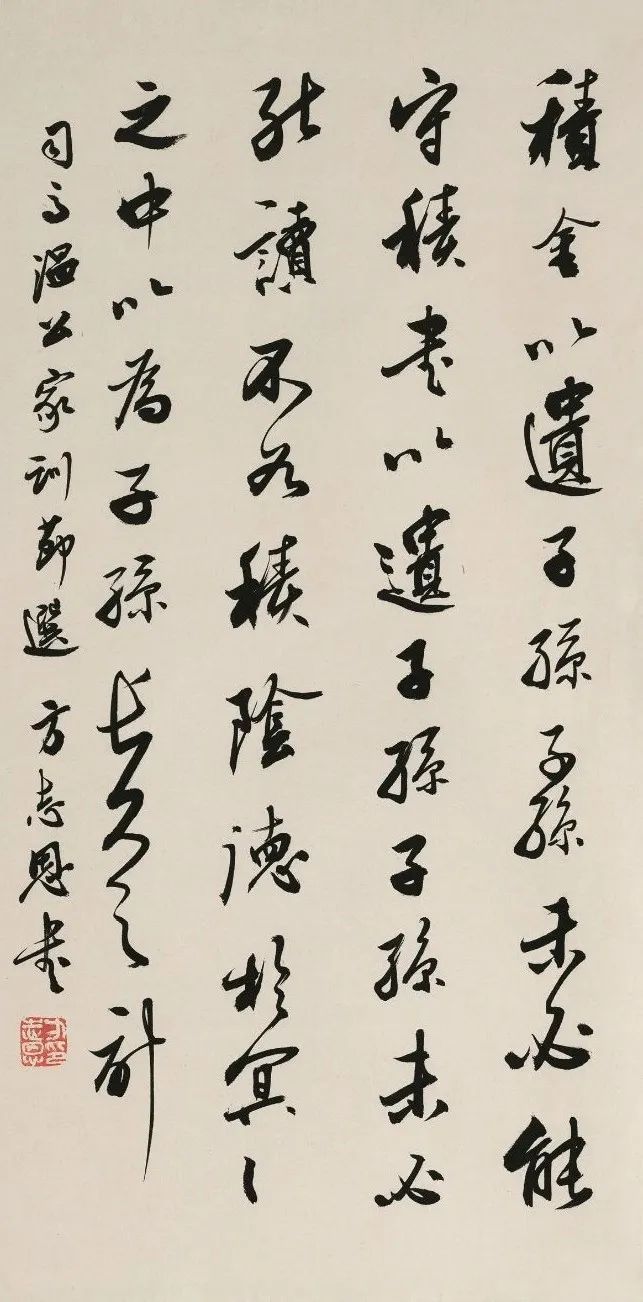 積金以遺子孫子孫未必能
守積書以遺子孫子孫未必
能讀不如積陰德於冥〻
之中以為子孫長久之計
司馬溫公家訓節選 方志恩書